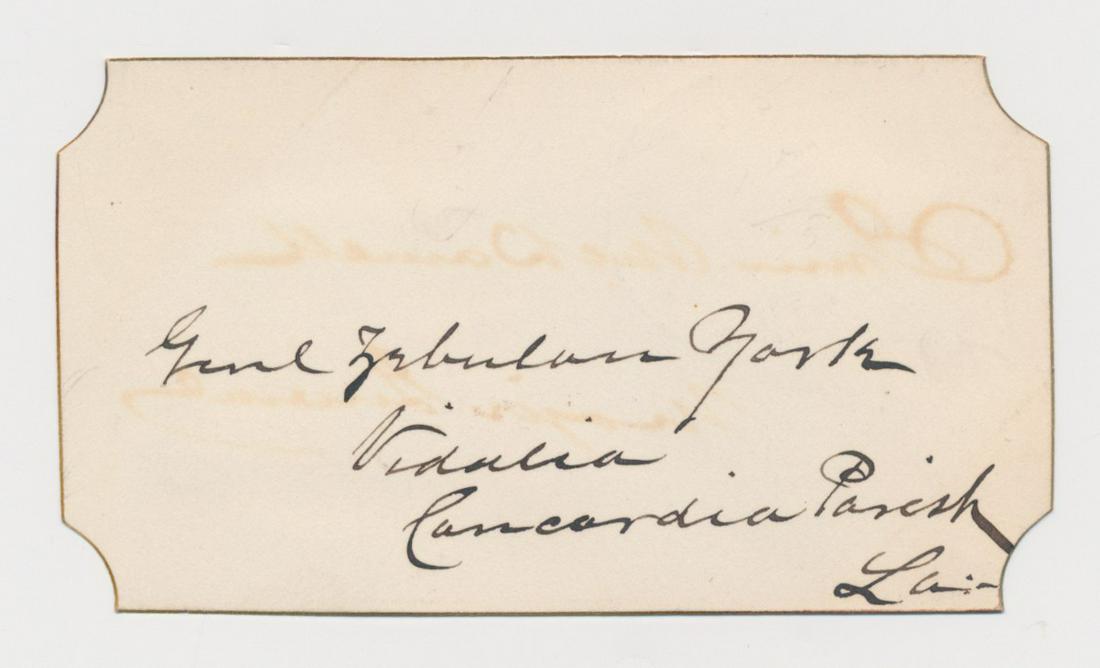 Genl Zebulon York
Vidalia
Concordia Parish
La.-